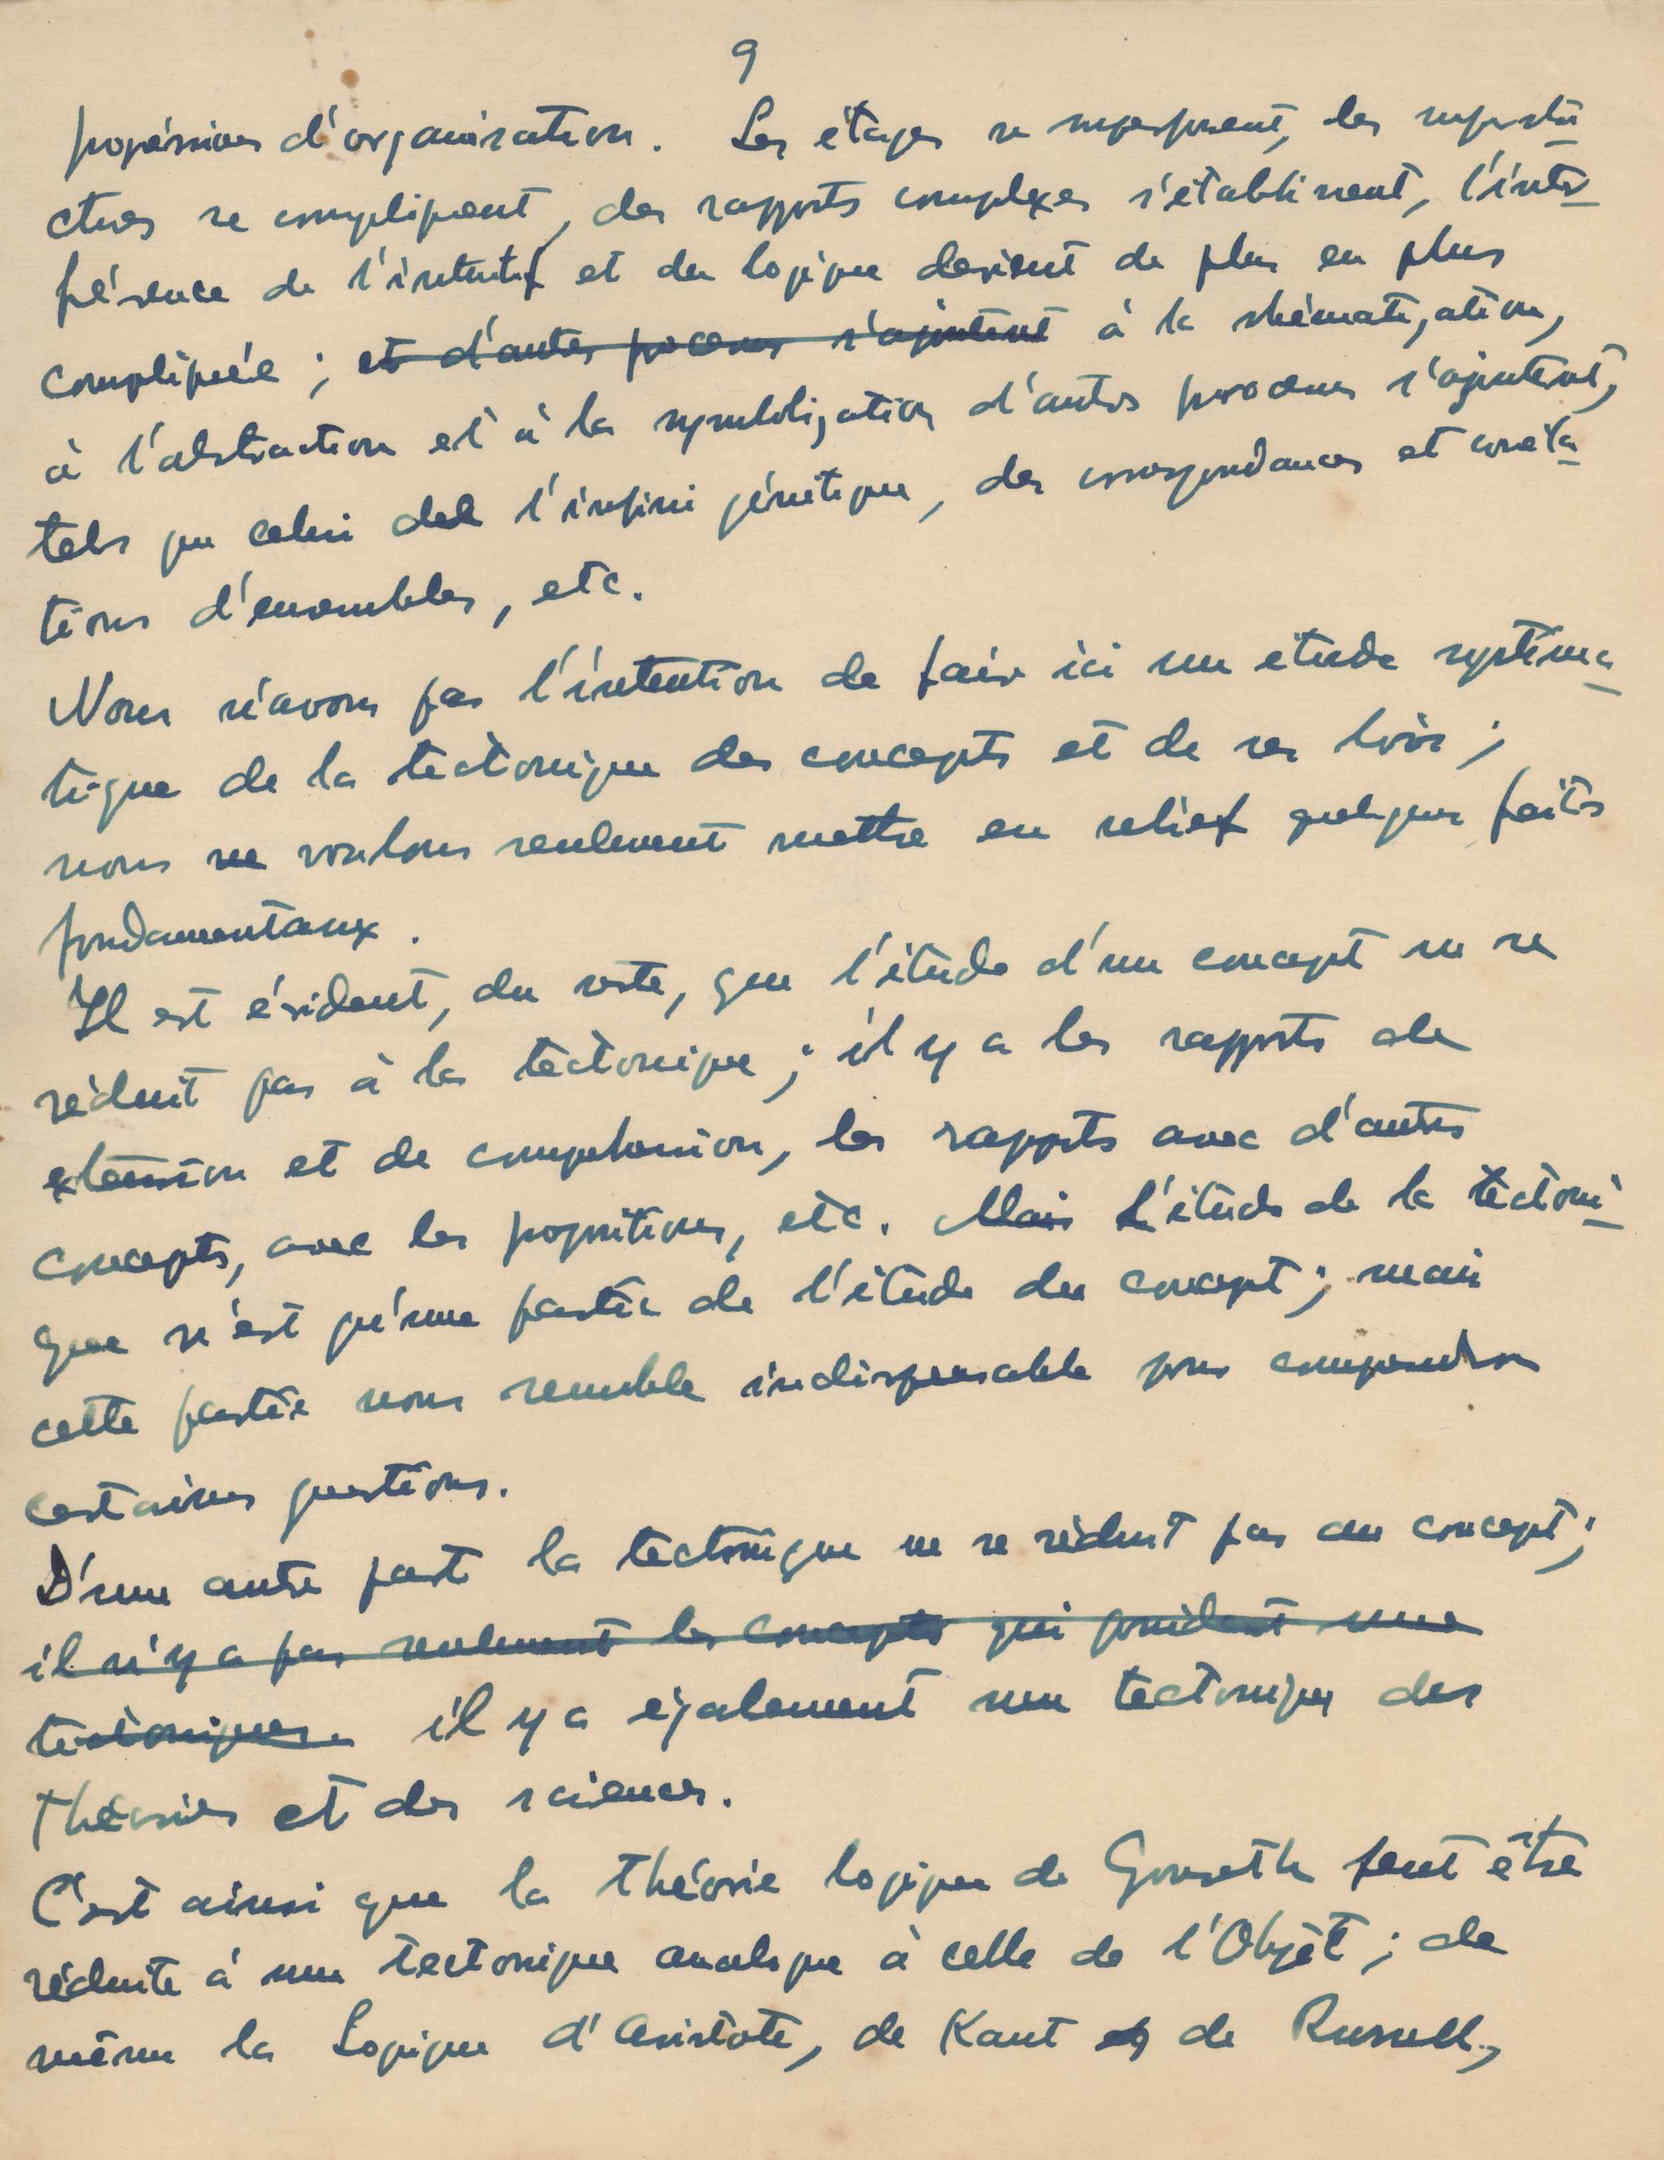 9
progressives d'organisation. Les étages se superposent, les superstru
ctures se compliquent, des rapports complexes s'établissent, l'inter
férence de l'intuitif et du logique devient de plus en plus
compliquée ; et d'autres processus s'ajoutent à la schématisation,
à l'abstraction et à la symbolisation d'autres processus s'ajoutent,
tels que celui de l'infini génétique, des correspondances et corréla
tions d'ensembles, etc.
Nous n'avons pas l'intention de faire ici une étude systéma
tique de la tectonique des concepts et de ses lois ;
nous ne voulons seulement mettre en relief quelques faits
fondamentaux.
Il est évident, du reste, que l'étude d'un concept ne se
réduit pas à la tectonique ; il y a les rapports de
extension et de compréhension, les rapports avec d'autres
concepts, avec les propositions, etc. Mais L'étude de la tectoni
que n'est qu'une partie de l'étude du concept ; mais
cette partie nous semble indispensable pour comprendre
certaines questions.
D'une autre part la tectonique ne se réduit pas au concept ;
il n'y a pas seulement les concepts qui possèdent une
tectonique. il y a également une tectonique des
théories et des sciences.
C'est ainsi que la théorie logique de Gonseth peut être
réduite à une tectonique analogue à celle de l'Objet ; de
même la Logique d'Aristote, de Kant et de Russell,